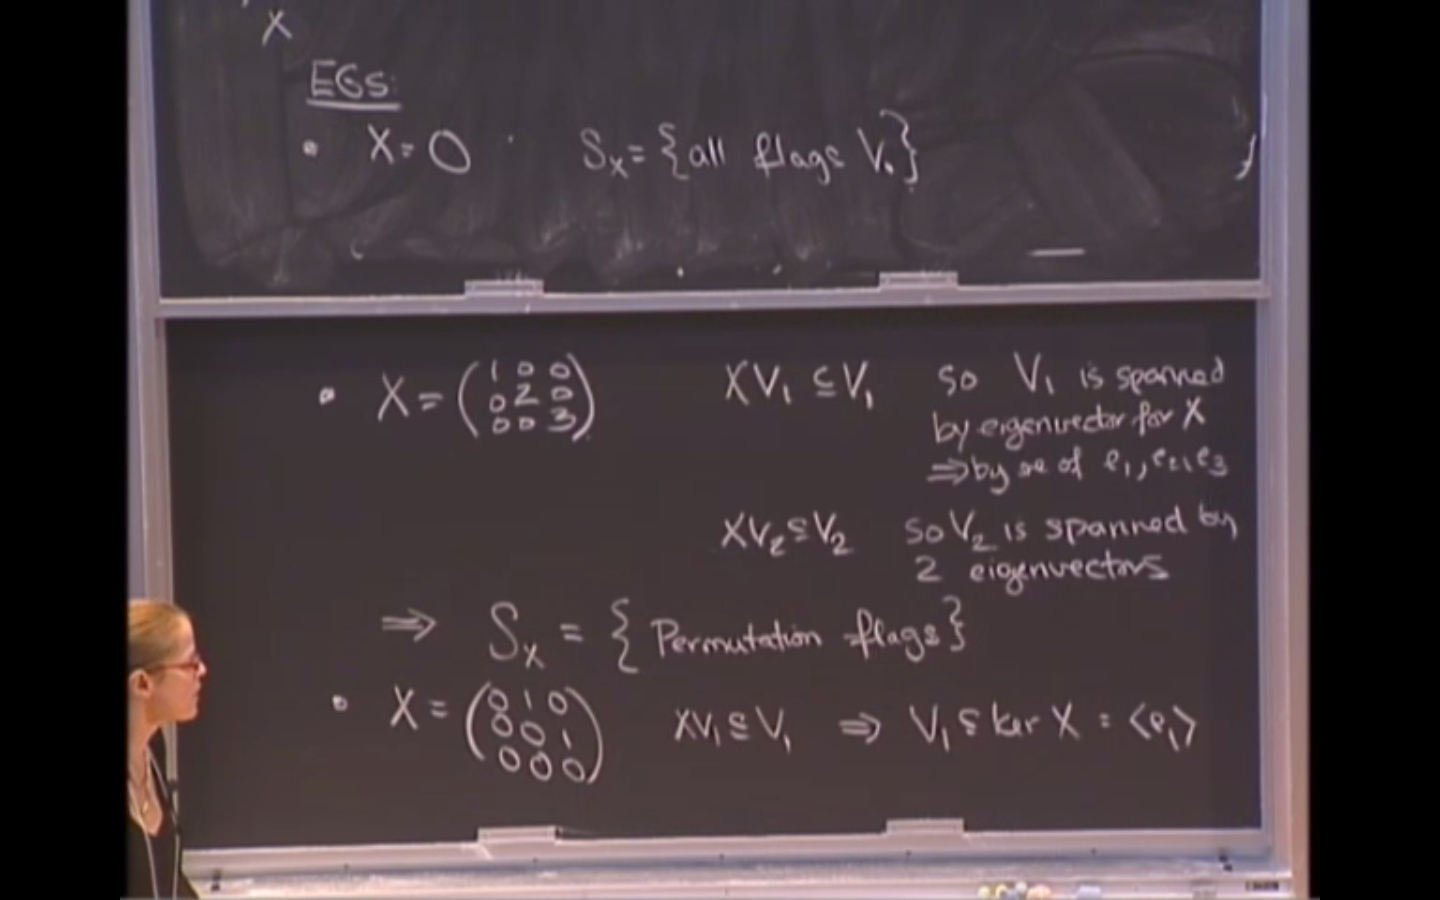 X
EGS:
• X = 0 S_X = {all flags V.}
• X = (1 0 0
0 2 0
0 0 3) XV₁ ⊆ V₁ so V₁ is spanned
by eigenvector for X
⇒ by one of e₁, e₂, e₃
XV₂ ⊆ V₂ so V₂ is spanned by
2 eigenvectors
⇒ S_X = {Permutation flags}
• X = (0 1 0
0 0 1
0 0 0) XV₁ ⊆ V₁ ⇒ V₁ ⊆ ker X = ⟨e₁⟩